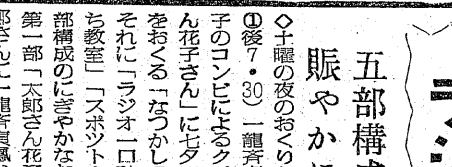 五部構成
賑やかに
◇土曜の夜のおくり
①後7・30）一龍斉
子のコンビによるク
ん花子さん」に七夕
をおくる「なつかし
それに「ラジオ一口
ち教室」「スポット
部構成のにぎやかな
第一部「太郎さん花
郎さんに一龍斉貞鳳